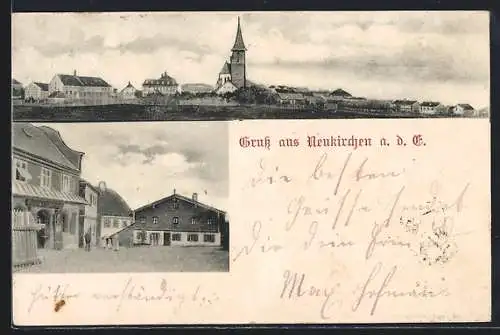 Gruß aus Neukirchen a. d. E.
Die besten
Grüsse sendet
Dir dein Freund
Max Hofmann